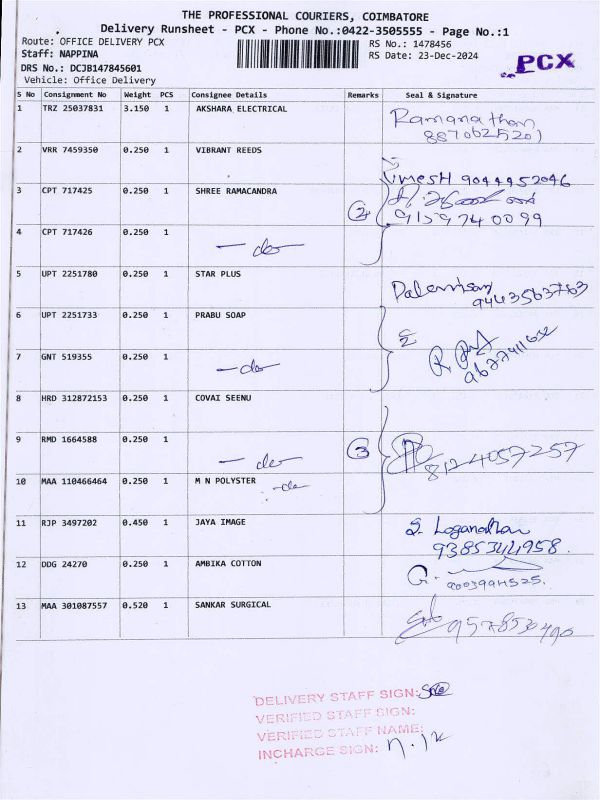 THE PROFESSIONAL COURIERS, COIMBATORE
Delivery Runsheet - PCX - Phone No.:0422-3505555 - Page No.:1
Route: OFFICE DELIVERY PCX RS No.: 1478456
Staff: NAPPINA RS Date: 23-Dec-2024
PCX
DRS No.: DCJB147845601
Vehicle: Office Delivery
S No Consignment No Weight PCS Consignee Details Remarks Seal & Signature
1 TRZ 25037831 3.150 1 AKSHARA ELECTRICAL Ramanathan
8870625201
2 VRR 7459350 0.250 1 VIBRANT REEDS
Umesh 9044952046
3 CPT 717425 0.250 1 SHREE RAMACANDRA
2 9159740099
4 CPT 717426 0.250 1
— do —
5 UPT 2251780 0.250 1 STAR PLUS
9443563763
6 UPT 2251733 0.250 1 PRABU SOAP
2
7 GNT 519355 0.250 1
— do —
8 HRD 312872153 0.250 1 COVAI SEENU
9 RMD 1664588 0.250 1
— do — 3 8124057257
10 MAA 110466464 0.250 1 M N POLYSTER
-do-
11 RJP 3497202 0.450 1 JAYA IMAGE S. Loganathan
9385344958.
12 DDG 24270 0.250 1 AMBIKA COTTON G.
9003994525.
13 MAA 301087557 0.520 1 SANKAR SURGICAL
9578530490
DELIVERY STAFF SIGN:
VERIFIED STAFF SIGN:
VERIFIED STAFF NAME:
INCHARGE SIGN: